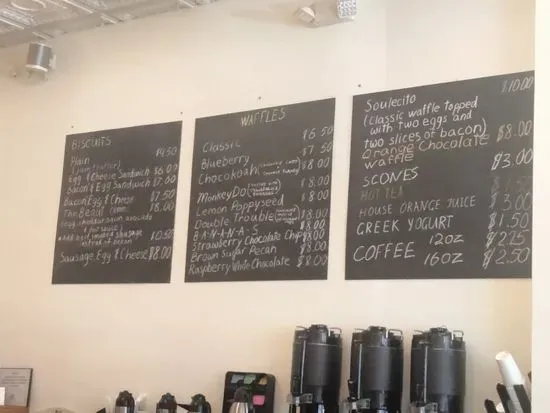 BISCUITS
Plain $4.50
(jam + butter)
Egg & Cheese Sandwich $6.00
Bacon & Egg Sandwich $7.00
Bacon Egg & Cheese $7.50
The Beaut $8.00
(egg, cheddar, bacon, avocado
& hot sauce)
Add sausage
instead of bacon $0.50
Sausage, Egg & Cheese $8.00
WAFFLES
Classic $6.50
Blueberry $7.50
Chockokoah $8.00
MonkeyDo $8.00
Lemon Poppyseed $8.00
Double Trouble $8.00
B-A-N-A-N-A-S $8.00
Strawberry Chocolate Chips $8.00
Brown Sugar Pecan $8.00
Raspberry White Chocolate $8.00
Soulecito $10.00
(Classic waffle topped
with two eggs and
two slices of bacon)
Orange Chocolate $8.00
waffle
SCONES $3.00
HOT TEA
HOUSE ORANGE JUICE $3.00
GREEK YOGURT $1.50
COFFEE 12oz $2.25
16oz $2.50